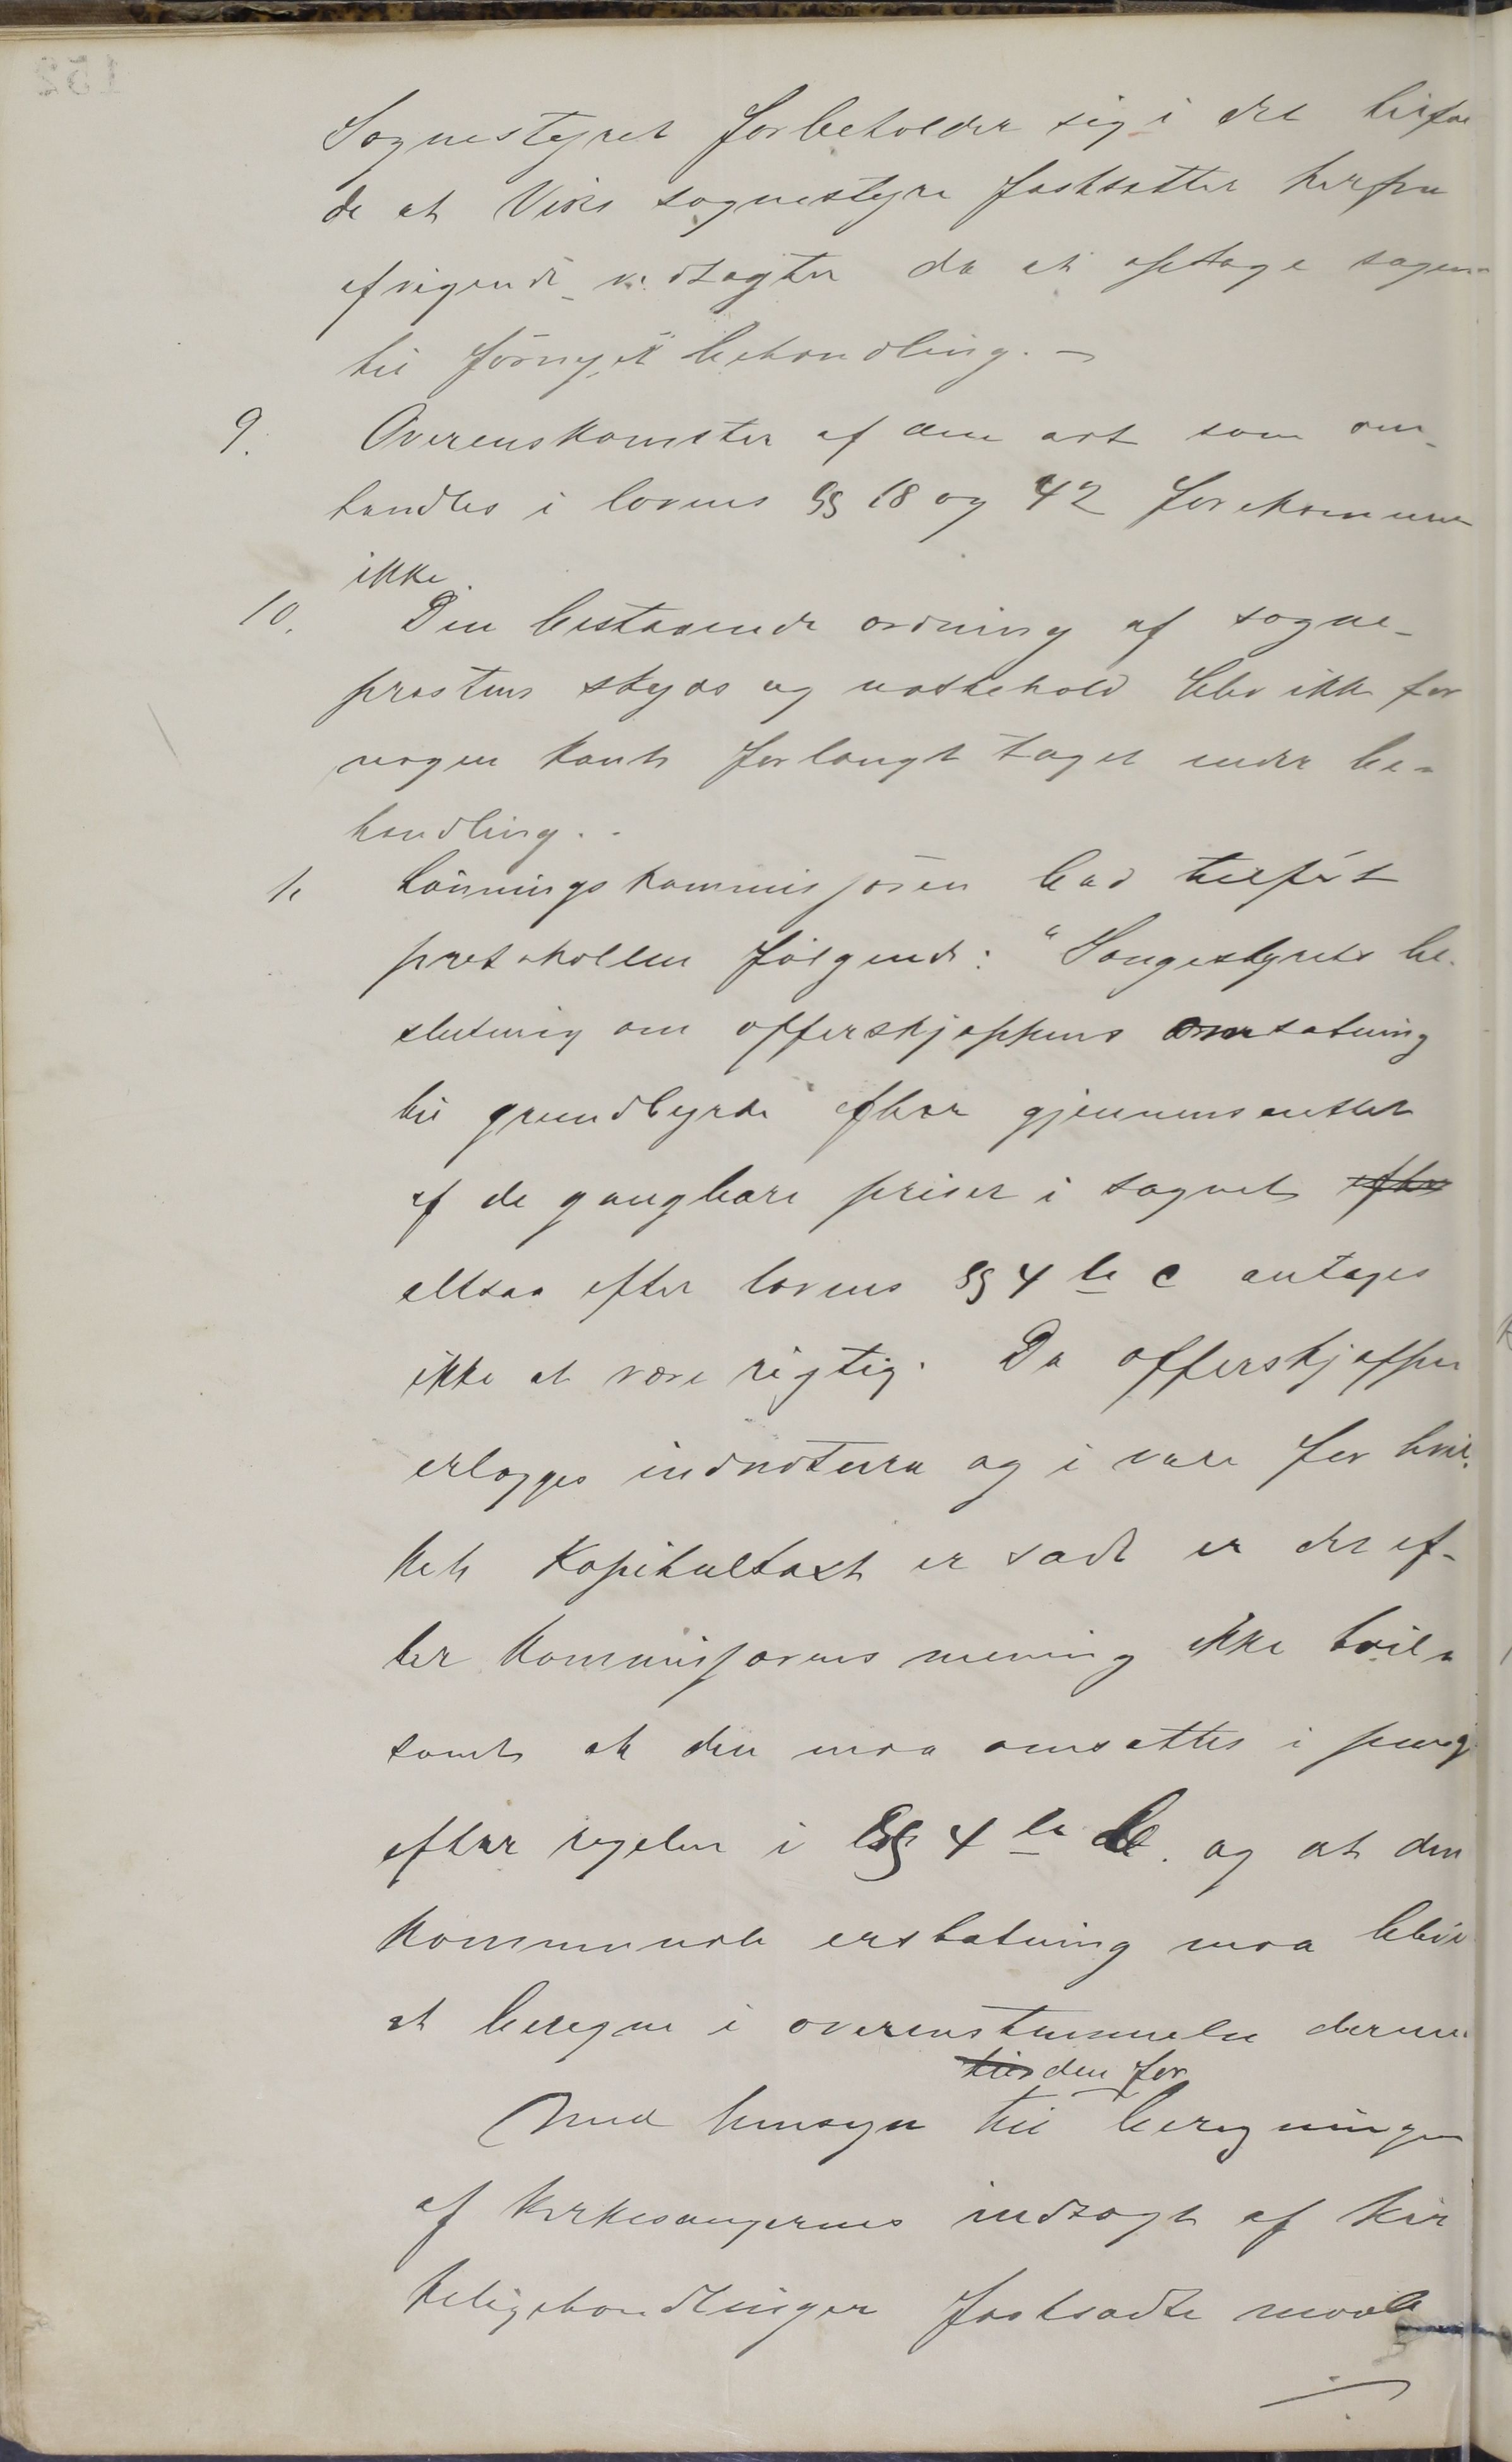 Sognestyret forbeholder sig i det tilfæl
de at Viks sognestyre fastsætter herfra
afvigende vedtægter da at optage sagen
til førnyet behandling. —
9. Overenskomster af den art som om-
handles i lovens §§ 18 og 42 forekommer
ikke
10. Den bestaaende ordning af sogne-
prestens skyds og underhold blev ikke fra
nogen kant forlangt taget under be-
handling. -
Lønningskommisjonen bad tilført
protokollen følgende: "Songestyrets be-
slutning om offerskjæppens omsætning
til grundbyrde efter gjennemsnittet
af de gangbare priser i sognet efter
altsaa efter lovens §§ 4 c antages
ikke at være rigtig. Da offerskjæppen
erlægges in natura og i vare for hvil-
ket Kapitelstaxt er sadt er det ef-
ter Kommisjonens mening ikke tvil-
somt at den maa omsættes i penge
efter regelen i §§ 4 b. og at den
Kommunale erstatning maa blive
at beregne i overensstemmelse dermed
tid den for
Med hensyn til beregningen
af Kirkesangernes indtægt af Kir
keligehandlinger fastsadte maal